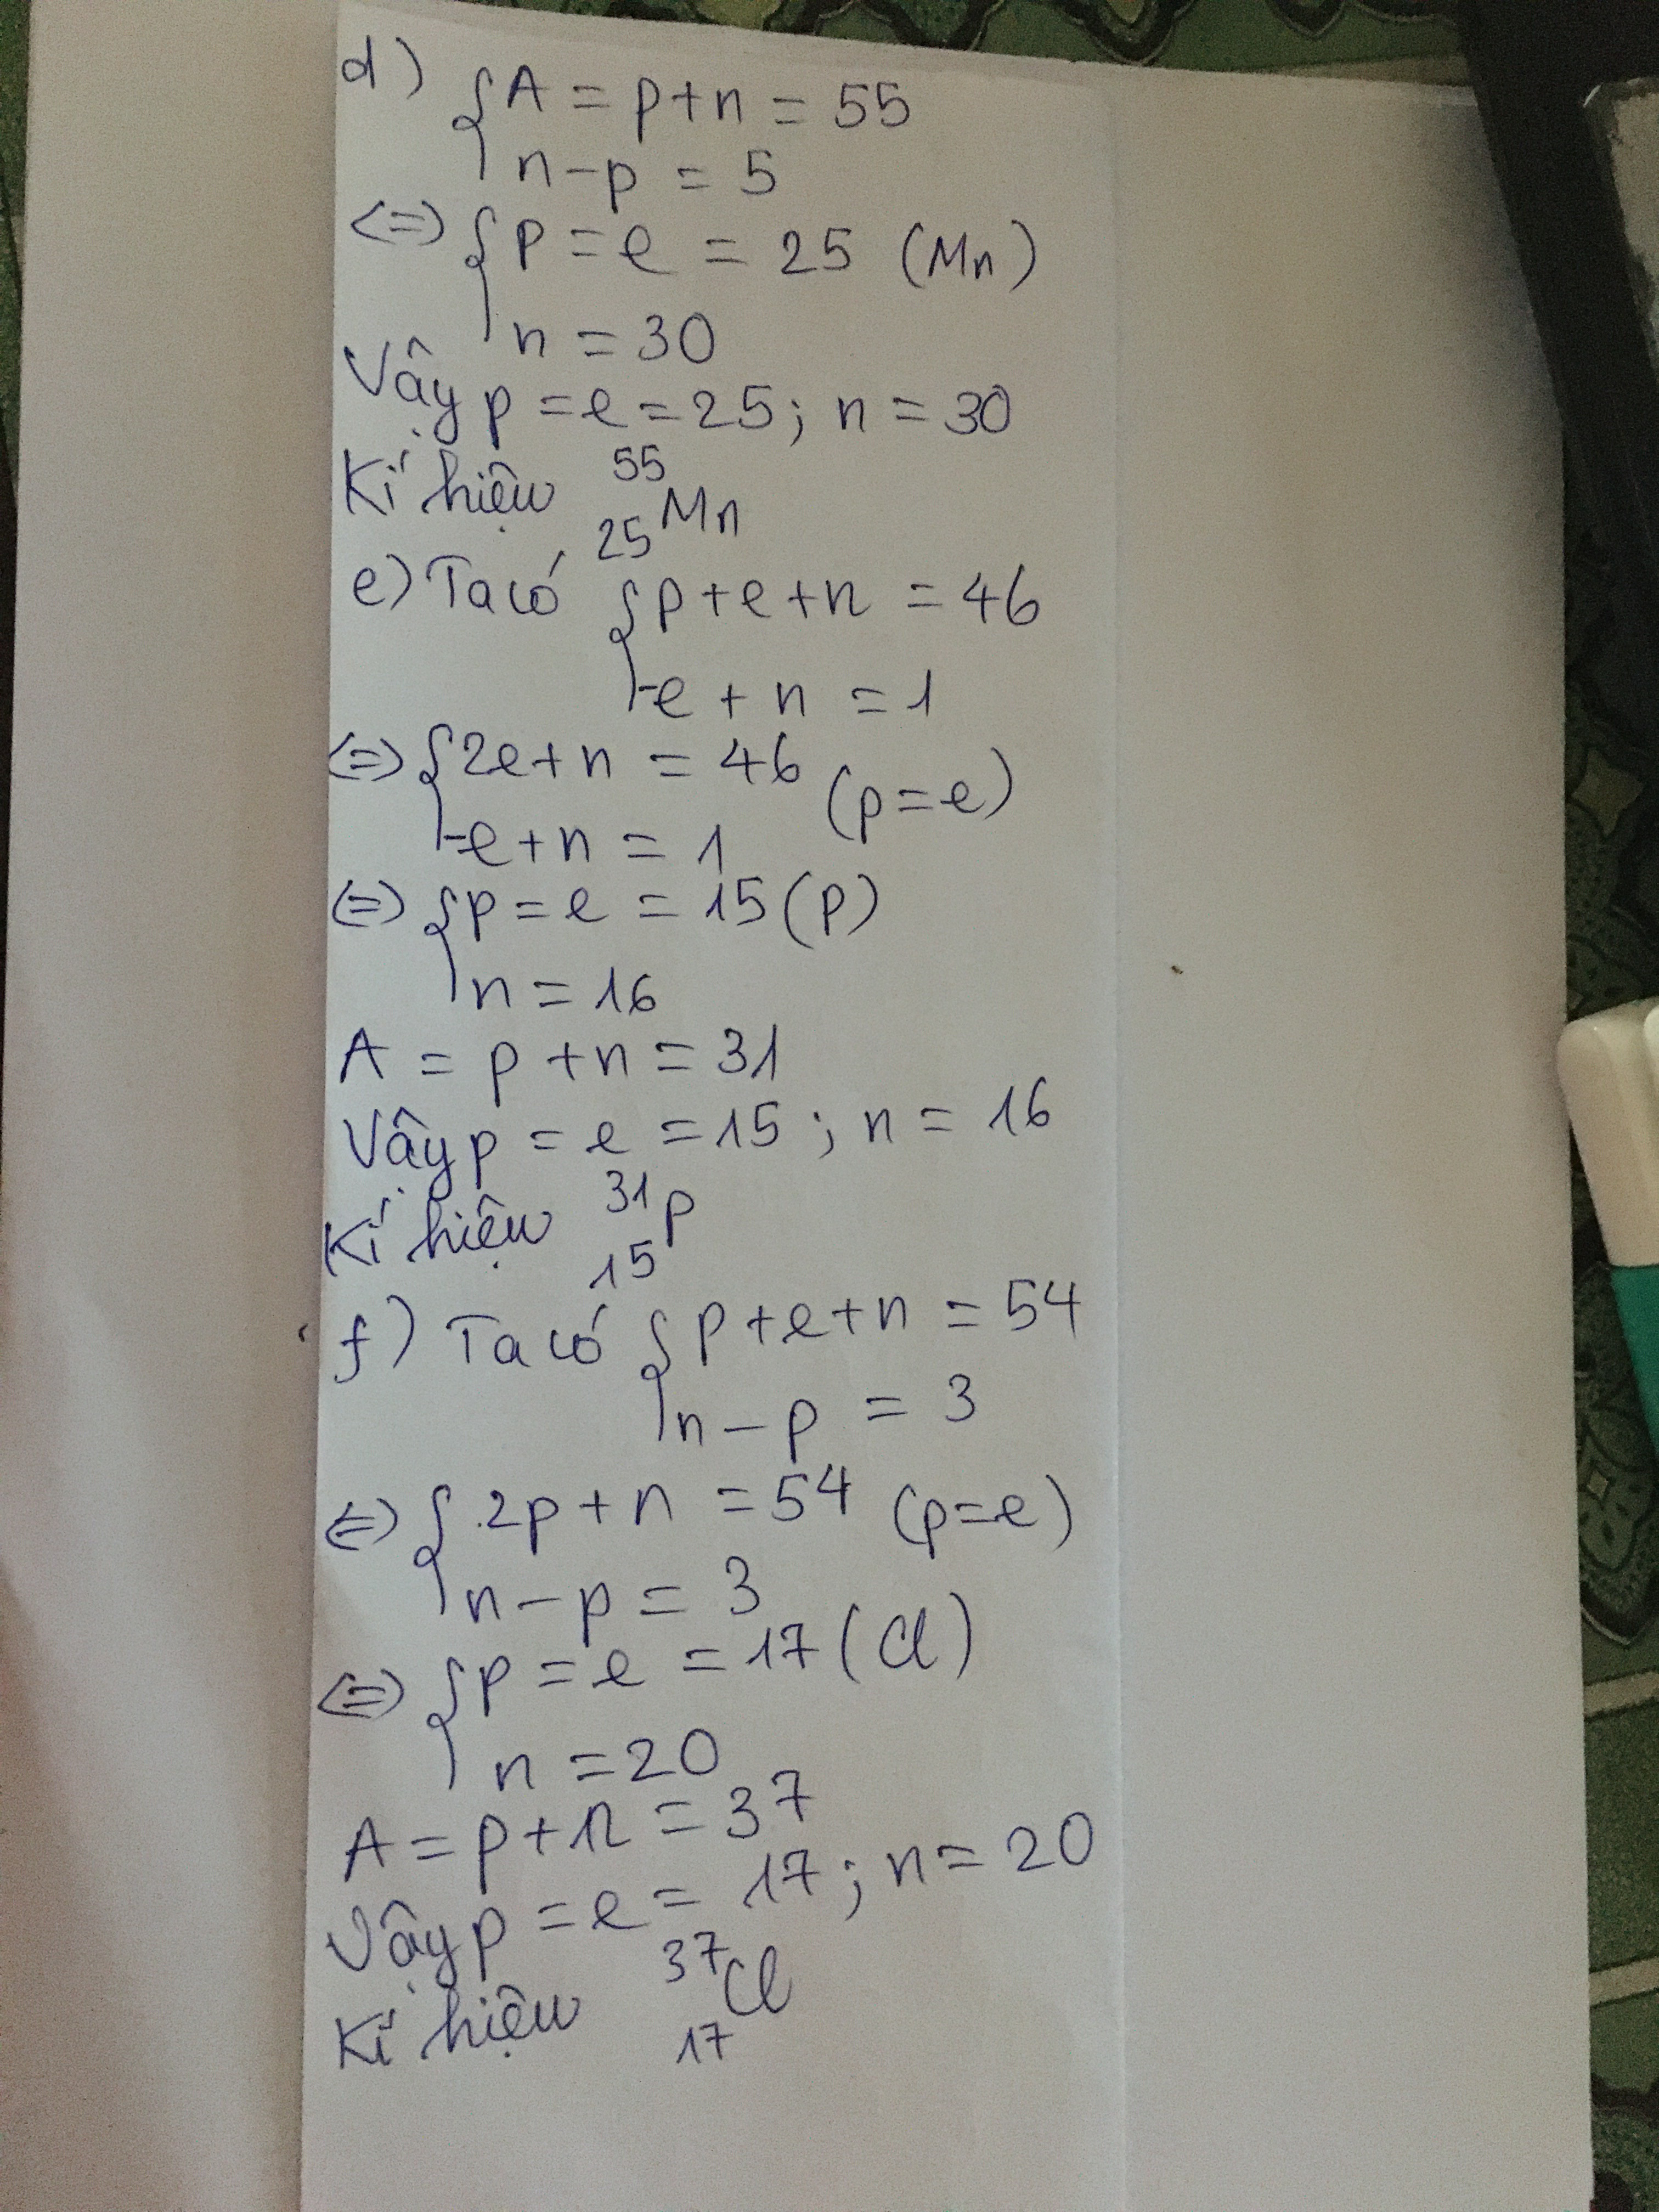 d) { A = p+n = 55
n-p = 5
<=> { p = e = 25 (Mn)
n = 30
Vậy p = e = 25; n = 30
Kí hiệu 55
25 Mn
e) Ta có { p+e+n = 46
-e + n = 1
<=> { 2e+n = 46 (p=e)
-e+n = 1
<=> { p = e = 15 (P)
n = 16
A = p+n = 31
Vậy p = e = 15; n = 16
Kí hiệu 31
15 P
f) Ta có { p+e+n = 54
n-p = 3
<=> { 2p+n = 54 (p=e)
n-p = 3
<=> { p = e = 17 (Cl)
n = 20
A = p+n = 37
Vậy p = e = 17; n = 20
Kí hiệu 37
17 Cl